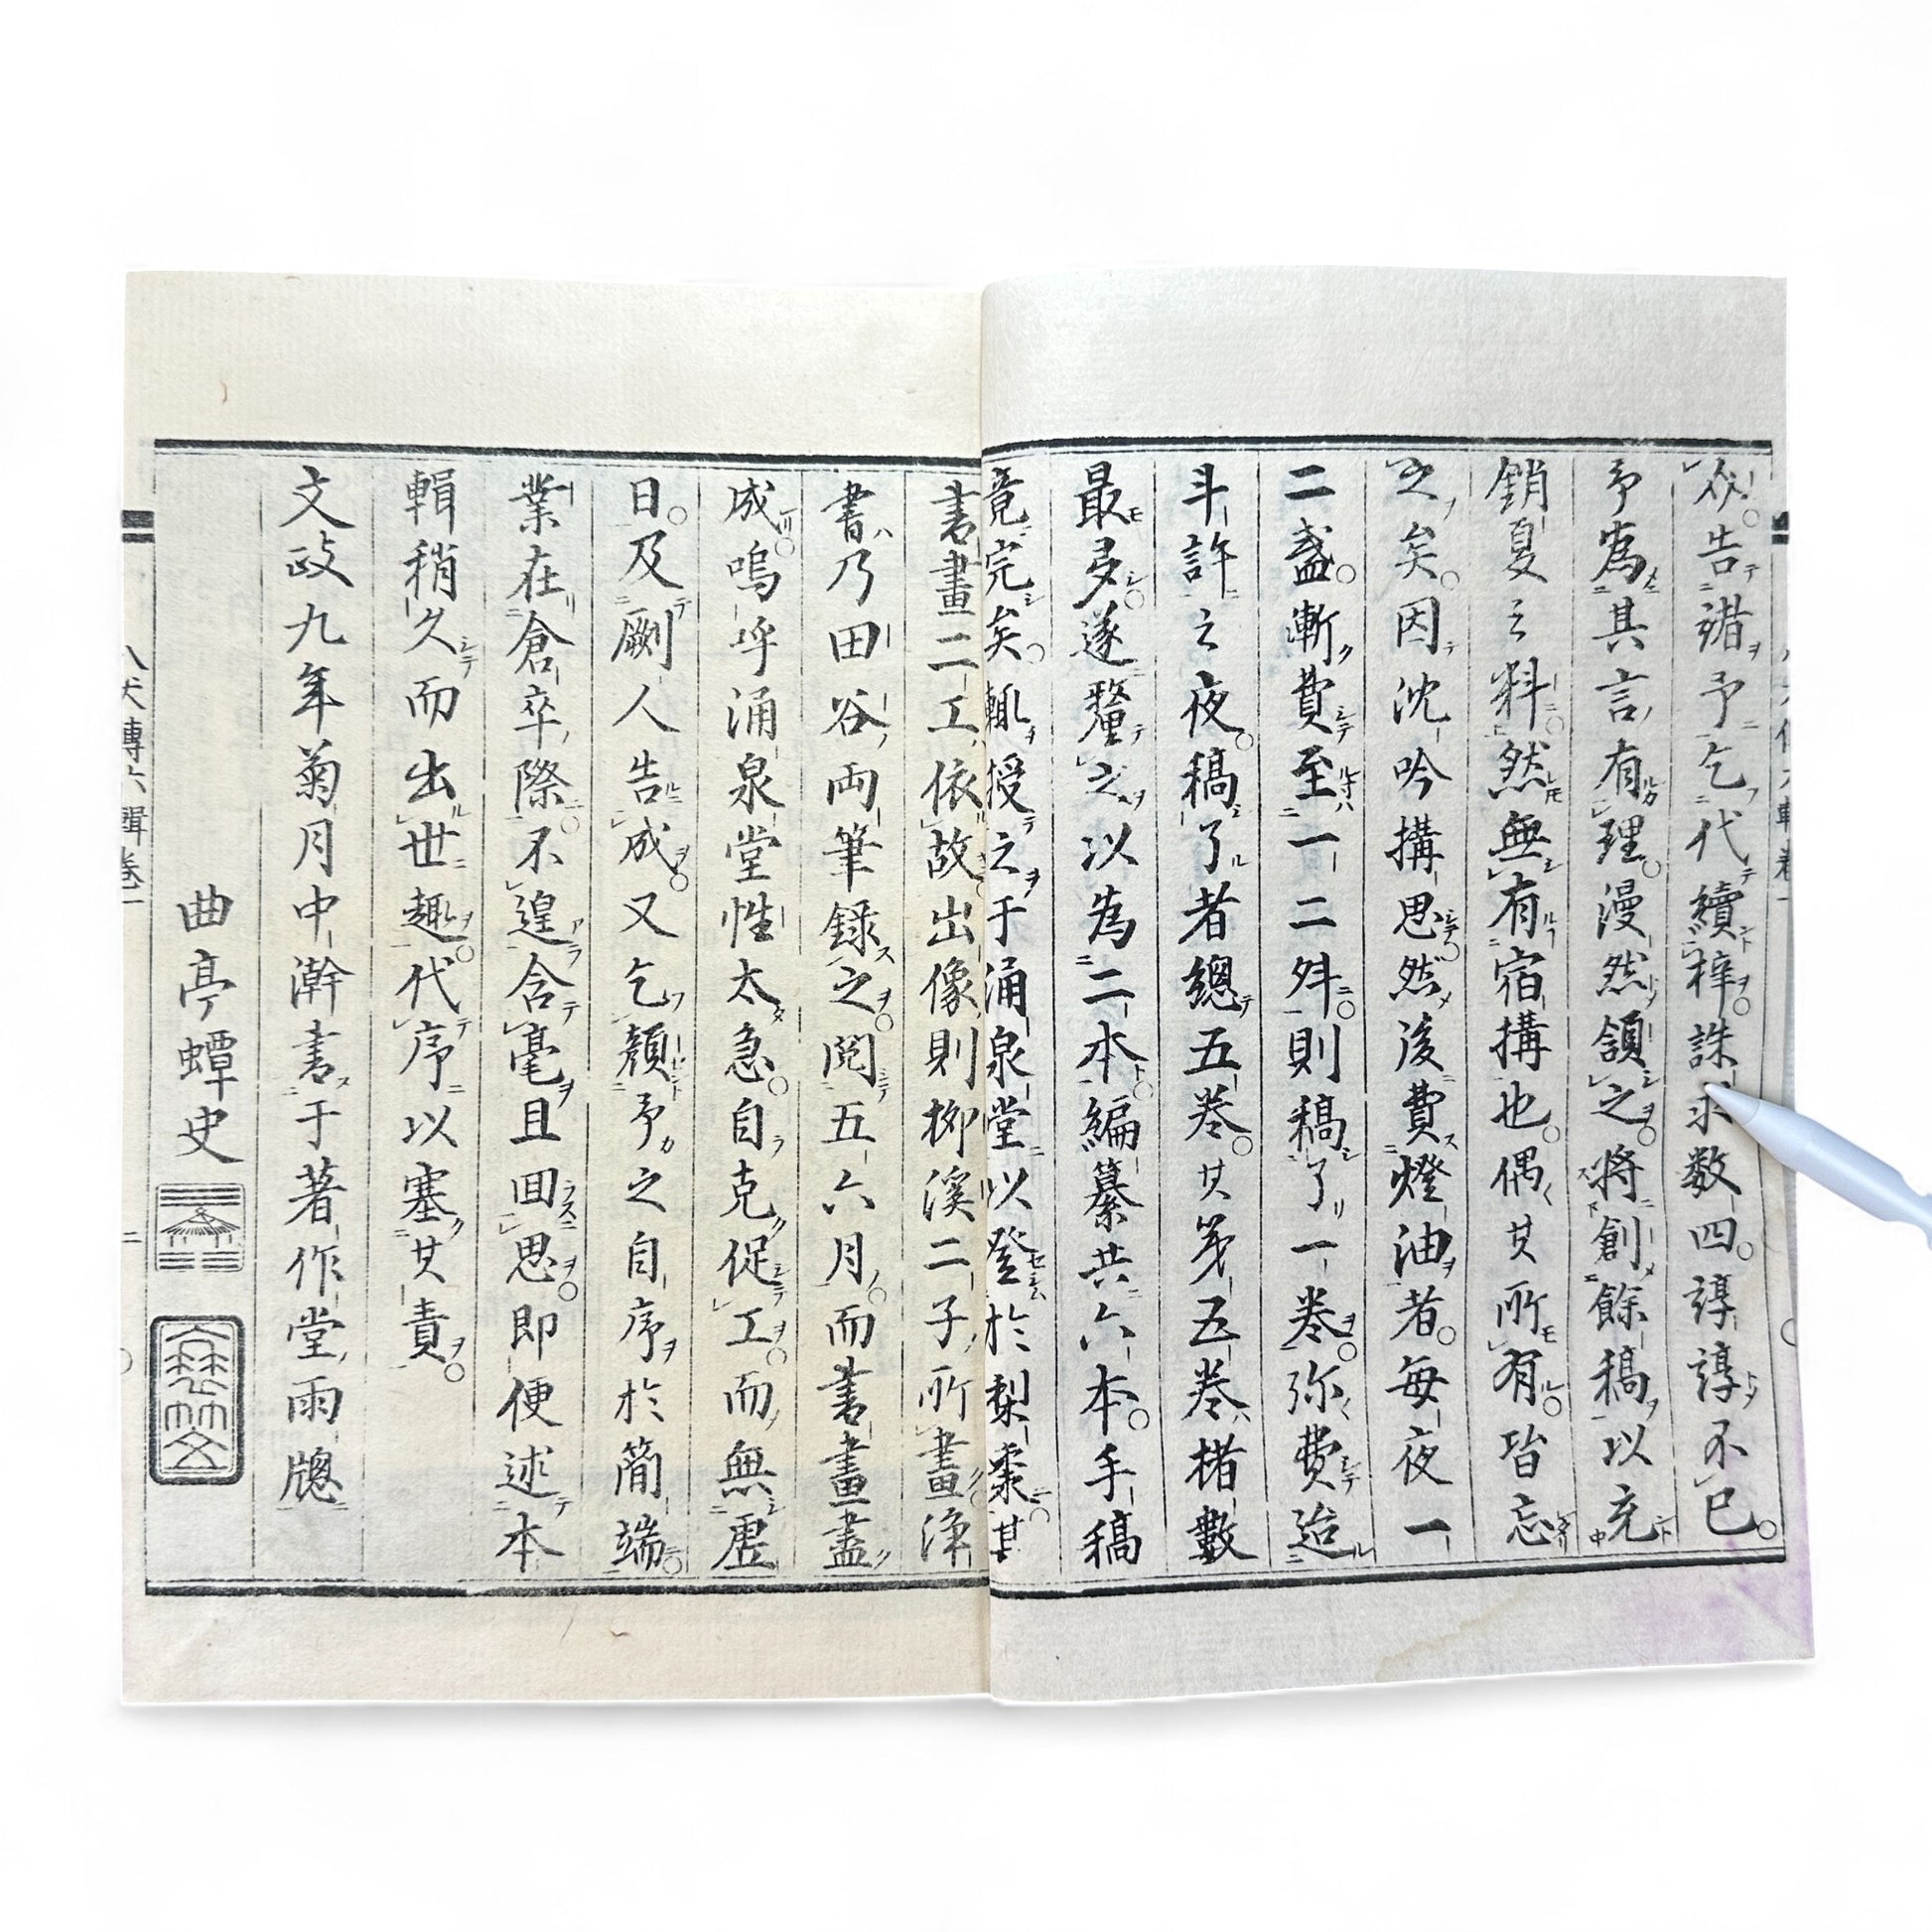 告諎予乞代續梓誅求数四諄諄不已
予為其言有理漫然頷之將創餘稿以充
銷夏之料然無有宿搆也偶其所有皆忘
之矣因沈吟搆思然後費燈油者每夜一
二盞漸費至一二舛則稿了一卷弥費迨
斗許之夜稿了者總五卷其第五卷楮數
最多遂釐之以為二本編纂共六本手稿
竟完矣輙授之于涌泉堂以登於梨棗其
書畫二工依故出像則柳溪二子所畫淨
書乃田谷兩筆録之閲五六月而書畫盡
成嗚呼涌泉堂性太急自克促工而無虚
日及劂人告成又乞願予之自序於簡端
業在倉卒際不遑含毫且囬思即便述本
輯稍久而出世趣代序以塞其責
文政九年菊月中澣書于著作堂雨牕
曲亭蟫史
八犬傳六輯卷一
二